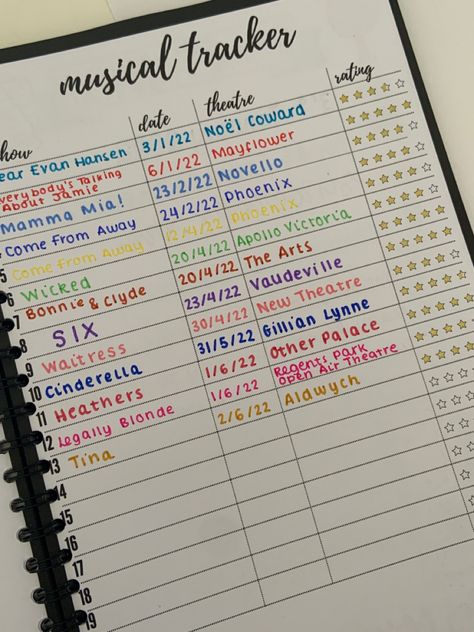 musical tracker
how date theatre rating
ear Evan Hansen 3/1/22 Noël Coward
verybody's Talking
About Jamie 6/1/22 Mayflower
Mamma Mia! 23/2/22 Novello
Come From Away 24/2/22 Phoenix
5 Come From Away 12/4/22 Phoenix
6 Wicked 20/4/22 Apollo Victoria
7 Bonnie & Clyde 20/4/22 The Arts
8 SIX 23/4/22 Vaudeville
9 Waitress 30/4/22 New Theatre
10 Cinderella 31/5/22 Gillian Lynne
11 Heathers 1/6/22 Other Palace
12 Legally Blonde 1/6/22 Regents Park
Open Air Theatre
13 Tina 2/6/22 Aldwych
14
15
16
17
18
19